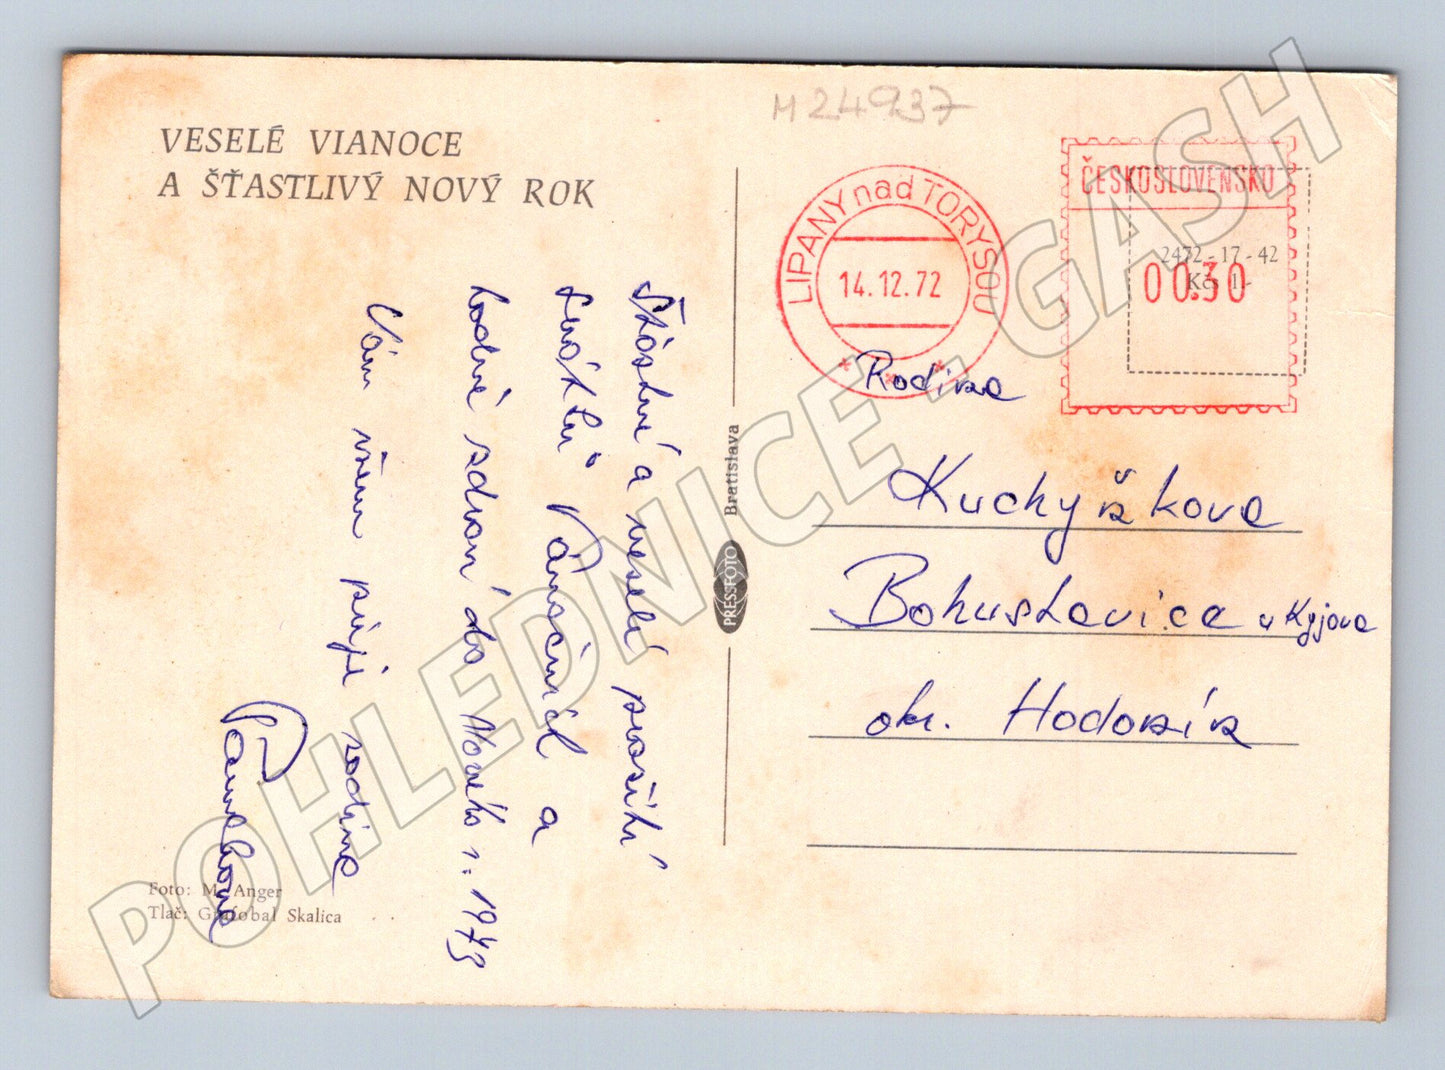 M 24937
VESELÉ VIANOCE
A ŠŤASTLIVÝ NOVÝ ROK
Šťastné a veselé prožití
svátků Vánočních a
hodně zdraví do Nového r. 1973
Vám všem přeje rodina
LIPANY nad TORYSOU
14.12.72
ČESKOSLOVENSKO
2472 - 17 - 42
Kčs 1.-
00.30
Rodina
Kuchyňkova
Bohuslavice u Kyjova
okr. Hodonín
PRESSFOTO Bratislava
Foto: M. Anger
Tlač: Grafobal Skalica
POHLEDNICE - GASH